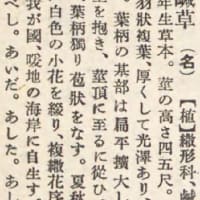 鹹草（名）【植】繖形科鹹
年生草本。莖の高さ四五尺。
羽狀複葉、厚くして光澤あり、
。葉柄の基部は扁平擴大し
莖を抱き、莖頂に至るに從ひ
葉柄獨り苞狀をなす。夏秋
白色の小花を綴り、複繖花序
我が國、暖地の海岸に自生す。
べし。あいだ。あした。あし